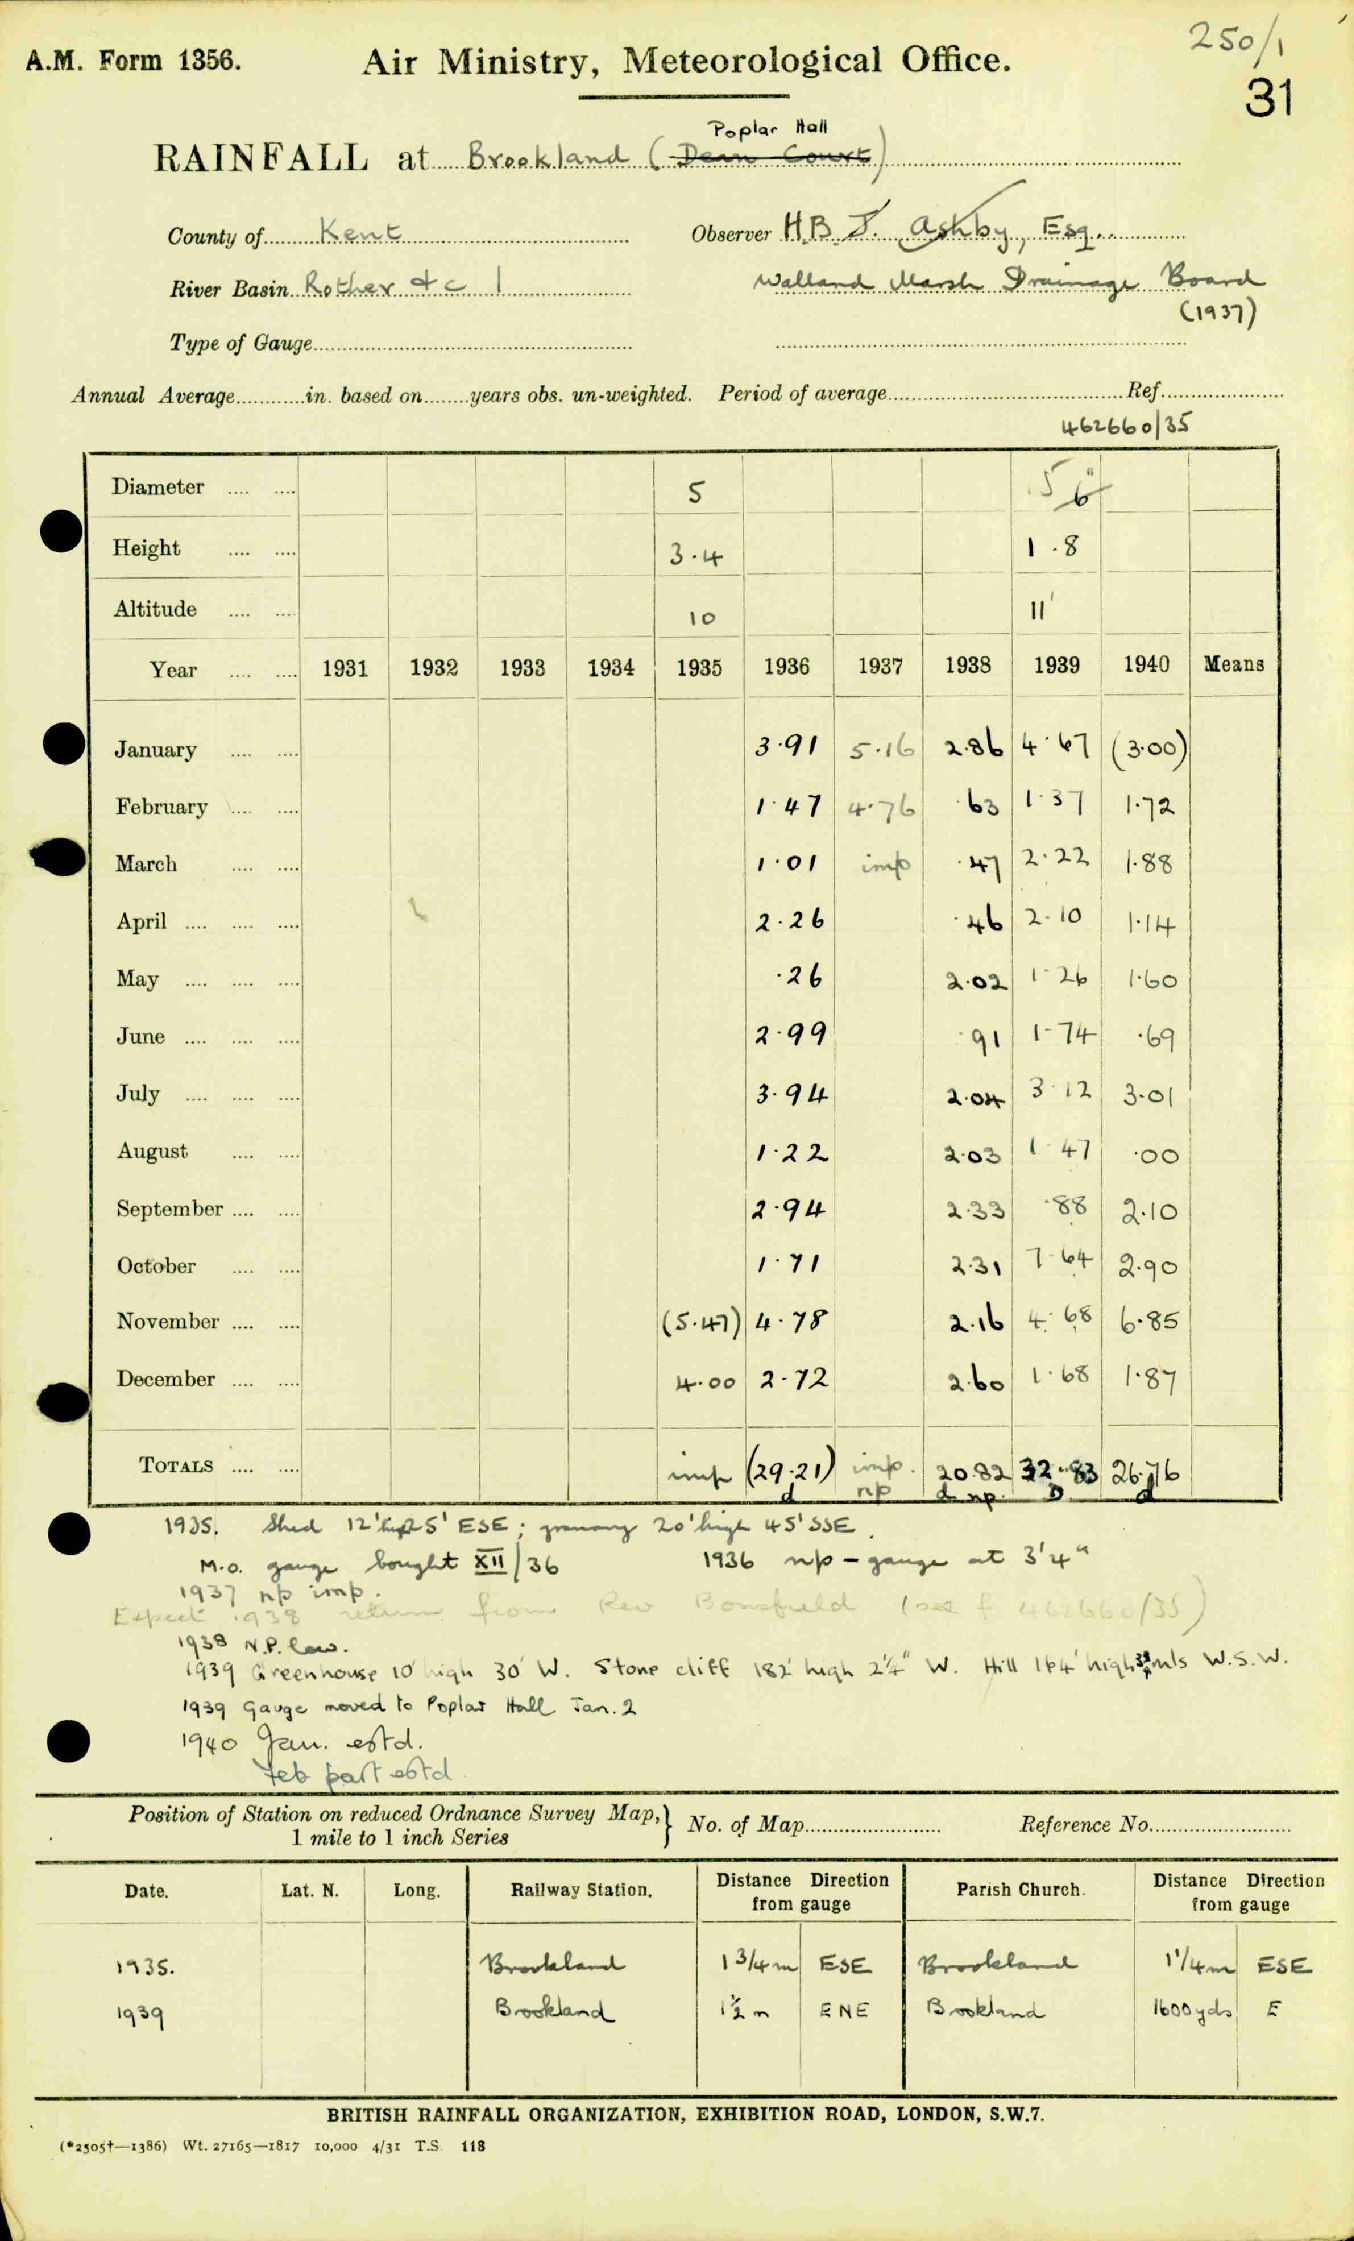 250/1
A.M. Form 1356. Air Ministry, Meteorological Office.
31
Poplar Hall
RAINFALL at Brookland (Dean Court)
County of Kent Observer H.B.J. Ashby, Esq.
River Basin Rother &c 1 Walland Marsh Drainage Board
(1937)
Type of Gauge
Annual Average in. based on years obs. un-weighted. Period of average Ref.
462660/35
Diameter 5 5 6"
Height 3.4 1.8
Altitude 10 11'
Year 1931 1932 1933 1934 1935 1936 1937 1938 1939 1940 Means
January 3.91 5.16 2.86 4.67 (3.00)
February 1.47 4.76 .63 1.37 1.72
March 1.01 imp .47 2.22 1.88
April 2.26 .46 2.10 1.14
May .26 2.02 1.26 1.60
June 2.99 .91 1.74 .69
July 3.94 2.04 3.12 3.01
August 1.22 2.03 1.47 .00
September 2.94 2.33 .88 2.10
October 1.71 2.31 7.64 2.90
November (5.47) 4.78 2.16 4.68 6.85
December 4.00 2.72 2.60 1.68 1.87
TOTALS imp (29.21) imp. 20.82 32.83 26.76
d np d np. D d
1935. Shed 12' high 25' ESE; granary 20' high 45' SSE.
M.O. gauge bought XII/36 1936 np – gauge at 3'4"
1937 np imp.
Expect 1938 return from Rev Bousfield (see f 462660/35)
1938 N.P. low.
1939 Greenhouse 10' high 30' W. Stone cliff 182' high W. Hill 164' high mls W.S.W.
1939 Gauge moved to Poplar Hall Jan. 2
1940 Jan. estd.
Feb part estd.
Position of Station on reduced Ordnance Survey Map, } No. of Map Reference No.
1 mile to 1 inch Series
Date. Lat. N. Long. Railway Station. Distance Direction from gauge Parish Church. Distance Direction from gauge
1935. Brookland 1 3/4 m ESE Brookland 1 1/4 m ESE
1939 Brookland 1½ m ENE Brookland 1600 yds E
BRITISH RAINFALL ORGANIZATION, EXHIBITION ROAD, LONDON, S.W.7.
(*2505†—1386) Wt. 27165—1817 10,000 4/31 T.S. 118